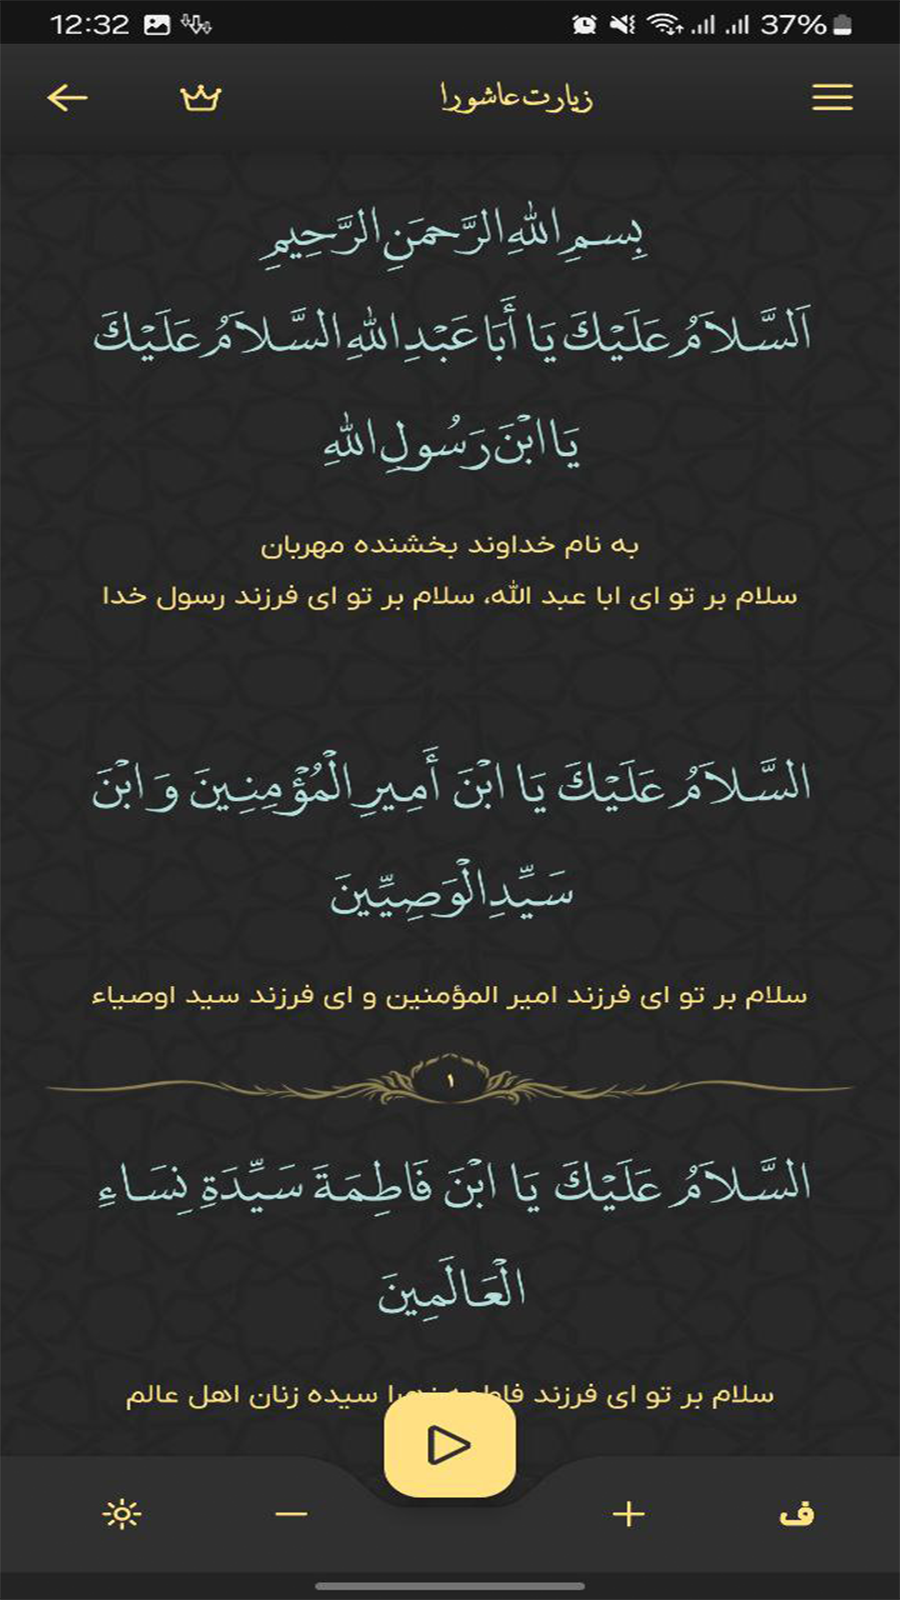 12:32
37%
زیارت عاشورا
بِسمِ اللهِ الرَّحمَنِ الرَّحِیمِ
اَلسَّلاَمُ عَلَیْكَ یَا أَبَا عَبْدِ اللهِ السَّلاَمُ عَلَیْكَ
یَا ابْنَ رَسُولِ اللهِ
به نام خداوند بخشنده مهربان
سلام بر تو ای ابا عبد الله، سلام بر تو ای فرزند رسول خدا
السَّلاَمُ عَلَیْكَ یَا ابْنَ أَمِیرِ الْمُؤْمِنِینَ وَ ابْنَ
سَیِّدِ الْوَصِیِّینَ
سلام بر تو ای فرزند امیر المؤمنین و ای فرزند سید اوصیاء
۱
السَّلاَمُ عَلَیْكَ یَا ابْنَ فَاطِمَةَ سَیِّدَةِ نِسَاءِ
الْعَالَمِینَ
سلام بر تو ای فرزند سیده زنان اهل عالم
ف